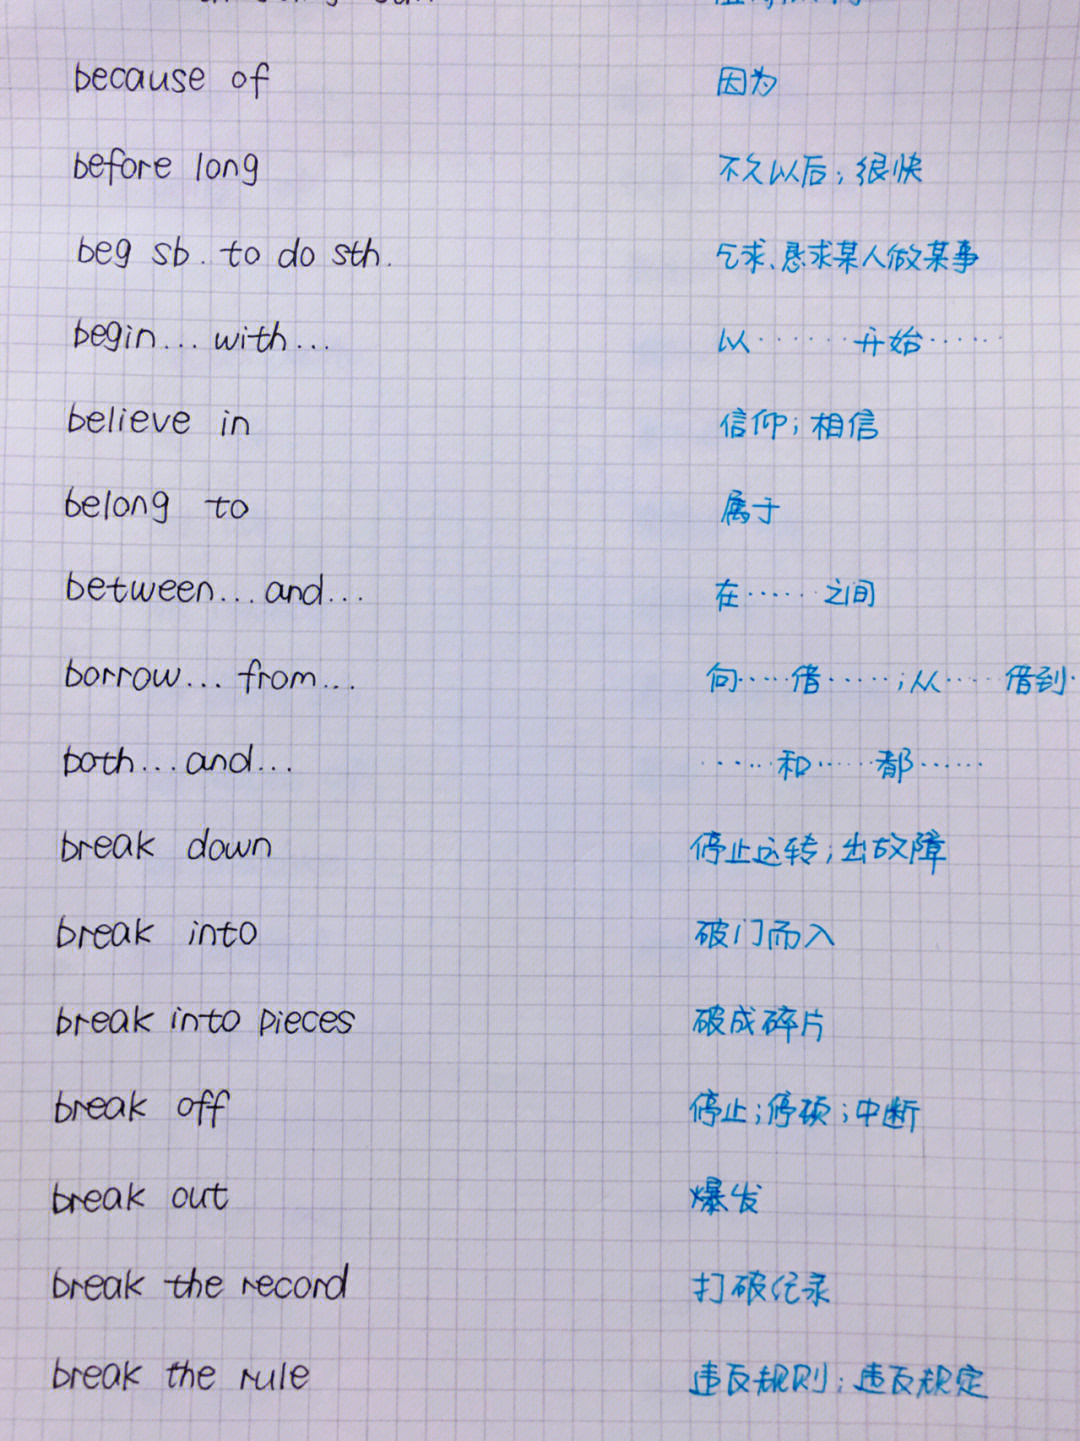 because of 因为
before long 不久以后；很快
beg sb. to do sth. 乞求、恳求某人做某事
begin... with... 以……开始……
believe in 信仰；相信
belong to 属于
between... and... 在……之间
borrow... from... 向……借……；从……借到…
both... and... ……和……都……
break down 停止运转；出故障
break into 破门而入
break into pieces 破成碎片
break off 停止；停顿；中断
break out 爆发
break the record 打破纪录
break the rule 违反规则；违反规定